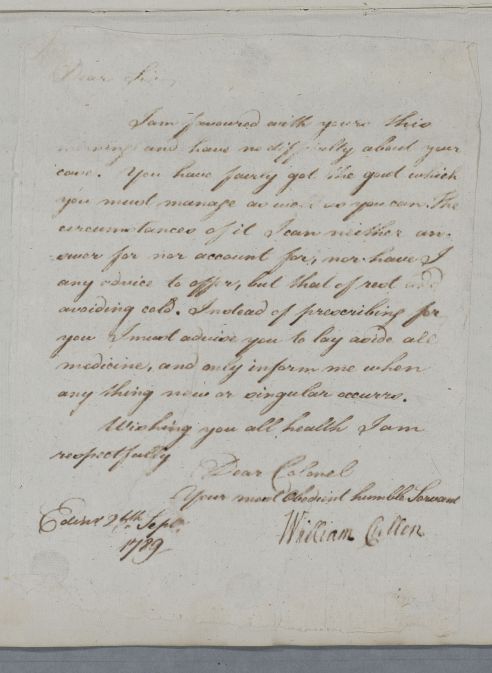 Dear Sir,
I am favoured with yours this
morning and have no difficulty about your
case. You have fairly got the gout which
you must manage as well as you can. The
circumstances of it I can neither an-
swer for nor account for, nor have I
any advice to offer, but that of rest and
avoiding cold. Instead of prescribing for
you I must advise you to lay aside all
medicine, and only inform me when
any thing new or singular occurrs.
Wishing you all health I am
respectfully
Dear Colonel
Your most Obedient humble Servant
William Cullen
Edinr 24th Septr
1789